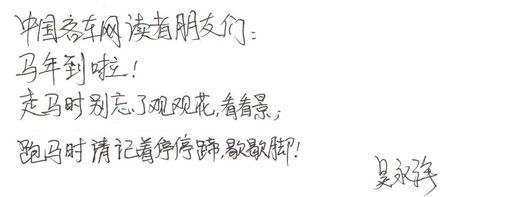 中国客车网读者朋友们：
马年到啦！
走马时别忘了观观花，看看景；
跑马时请记着停停蹄，歇歇脚！
吴永强